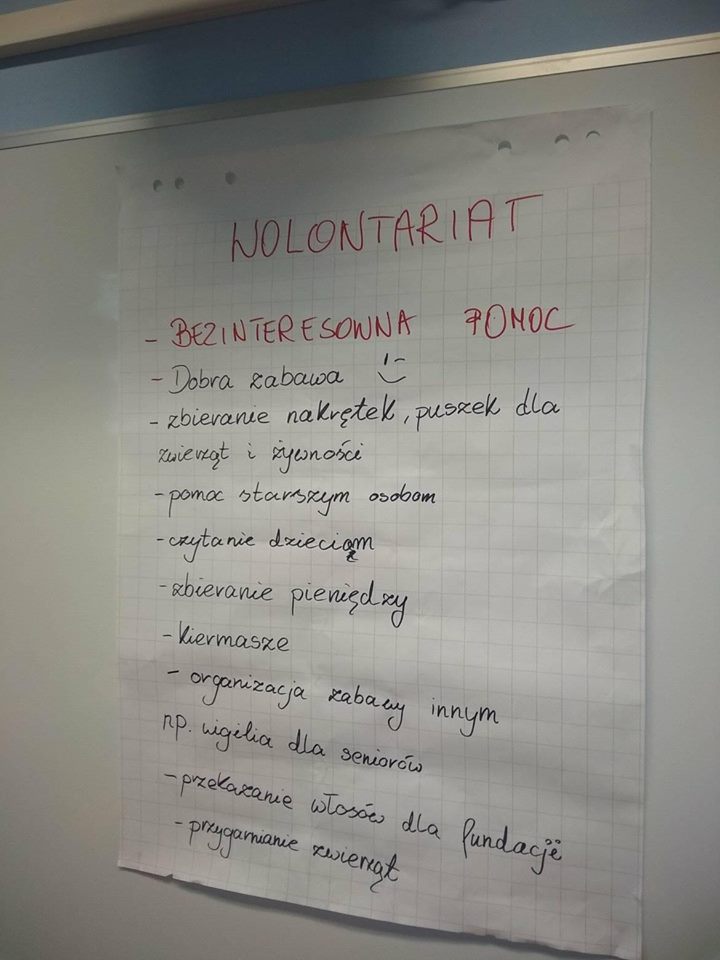 WOLONTARIAT
- BEZINTERESOWNA POMOC
- Dobra zabawa
- zbieranie nakrętek, puszek dla
zwierząt i żywności
- pomoc starszym osobom
- czytanie dzieciom
- zbieranie pieniędzy
- kiermasze
- organizacja zabawy innym
np. wigilia dla seniorów
- przekazanie włosów dla fundacji
- przygarnianie zwierząt